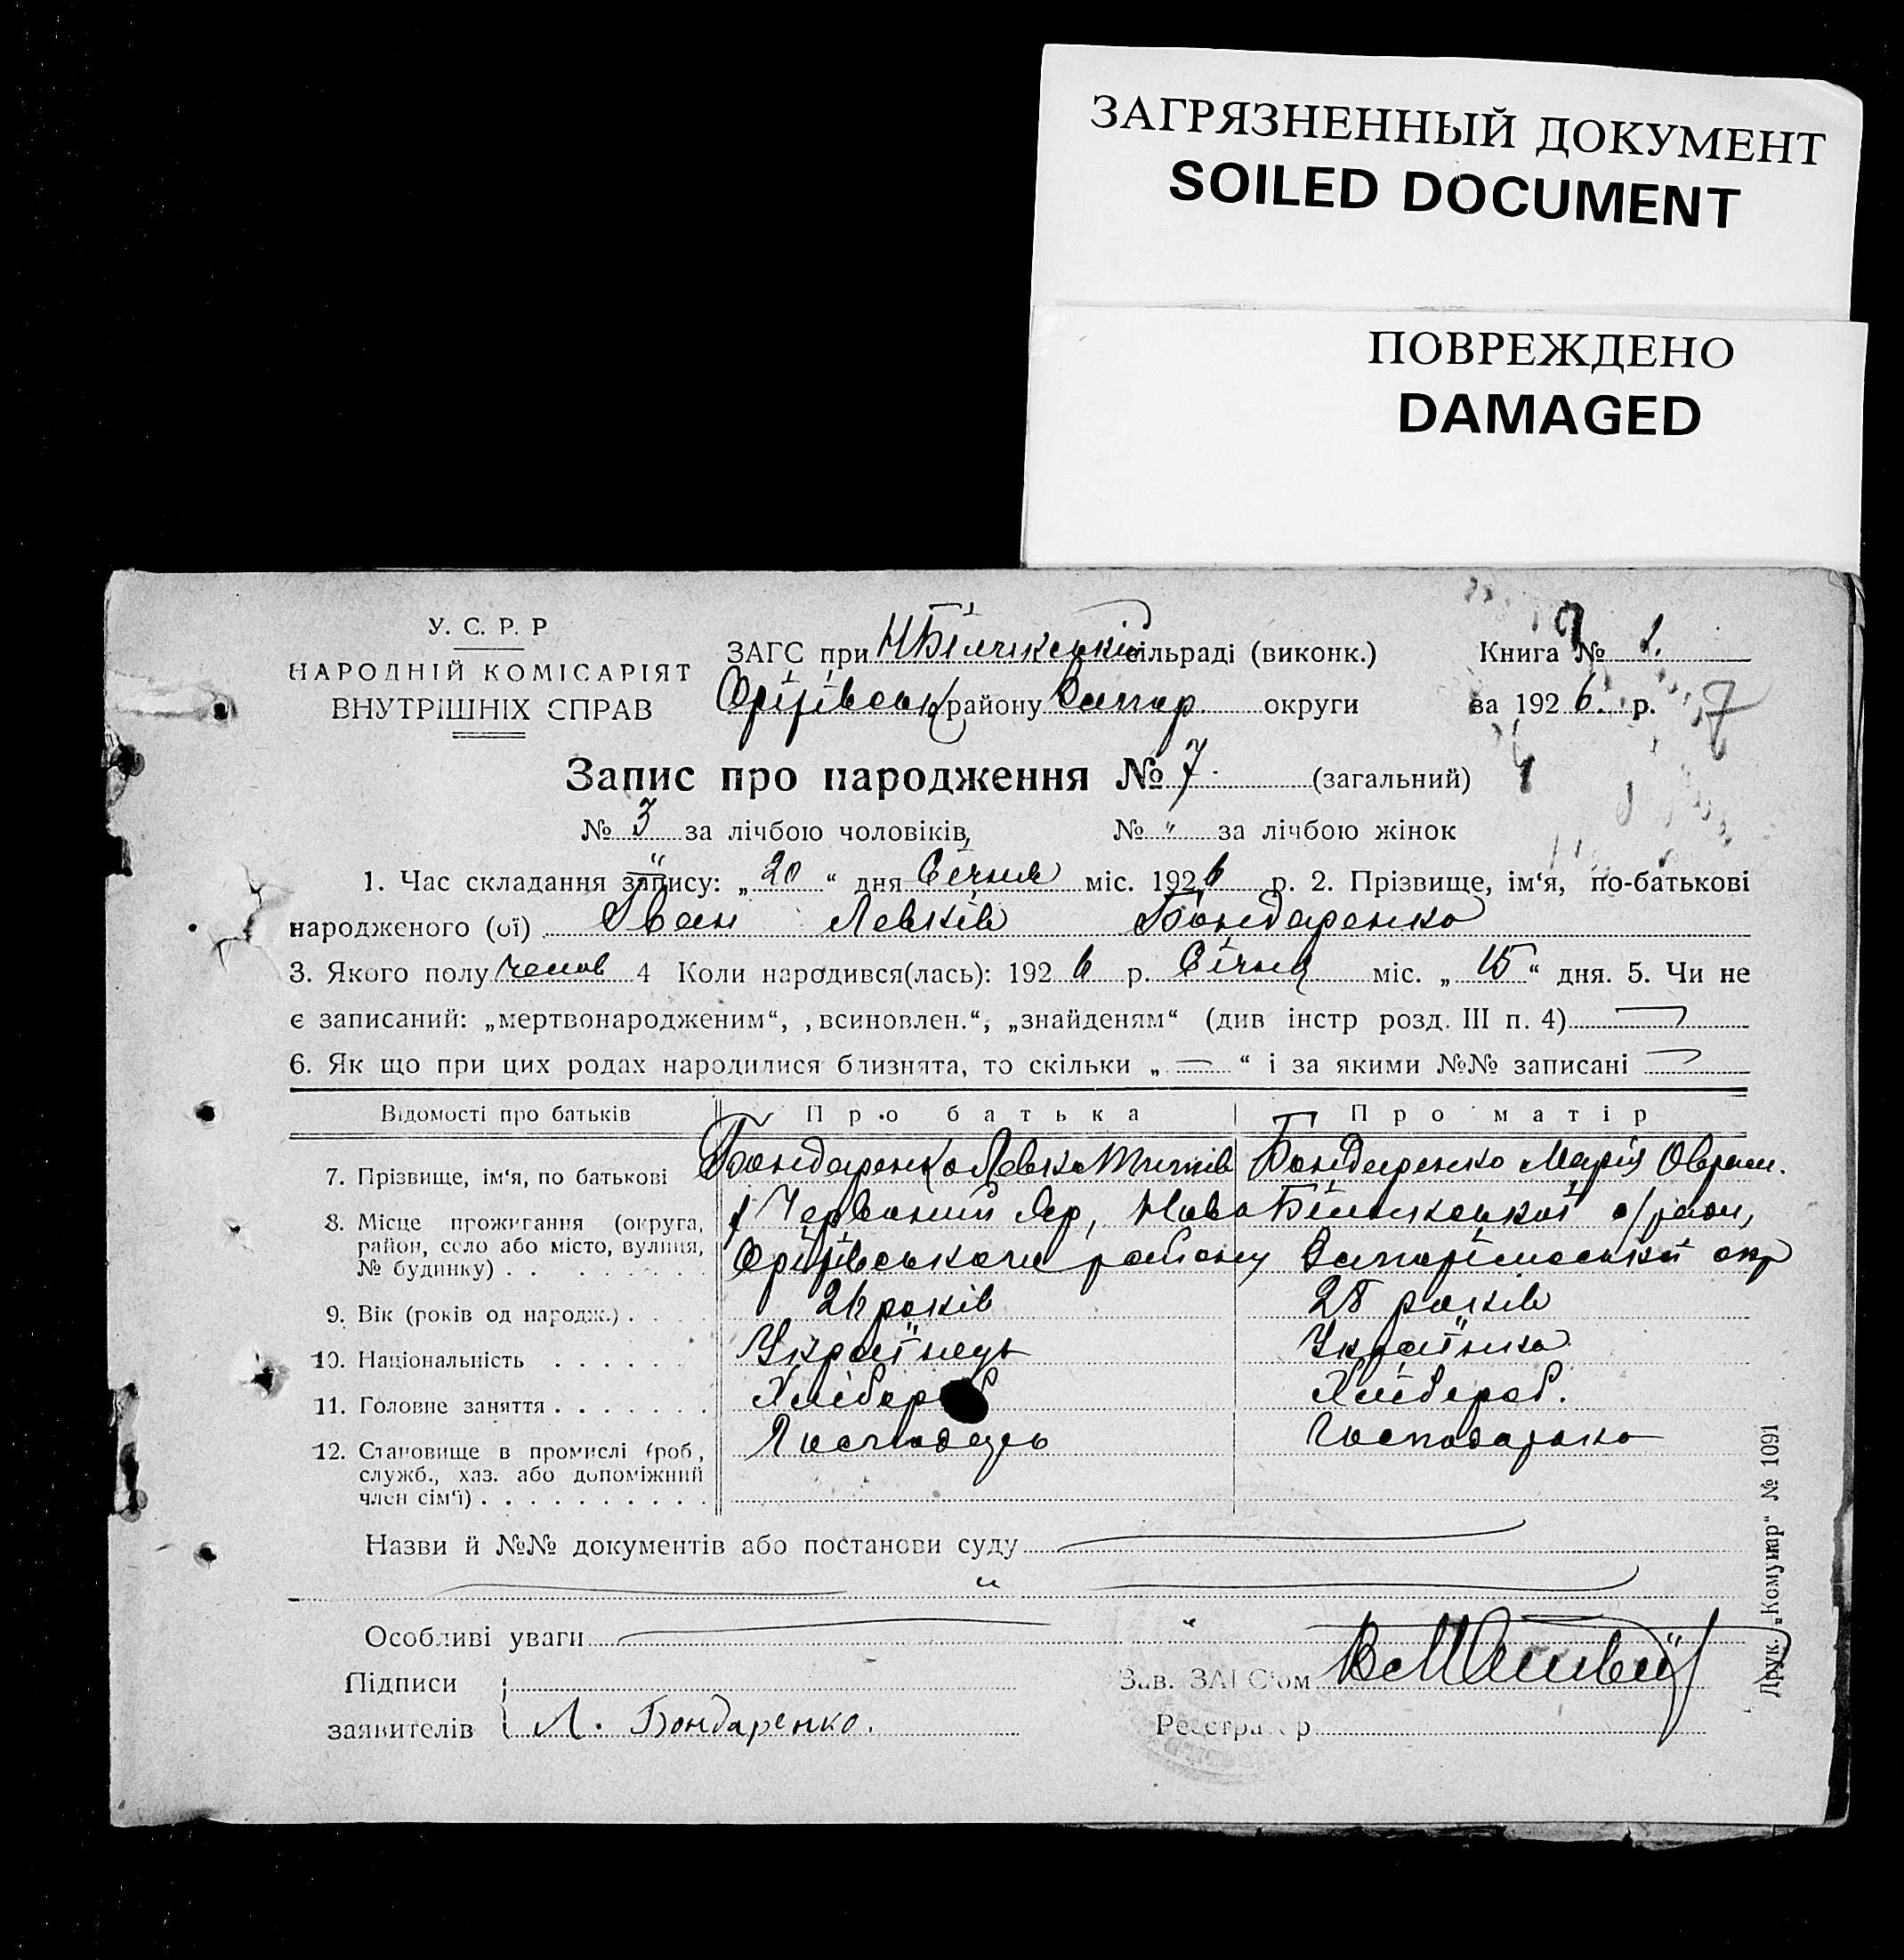 ЗАГРЯЗНЕННЫЙ ДОКУМЕНТ
SOILED DOCUMENT
ПОВРЕЖДЕНО
DAMAGED
У. С. Р. Р
НАРОДНІЙ КОМІСАРІЯТ
ВНУТРІШНІХ СПРАВ
ЗАГС при сільраді (виконк.)
Книга № 1.
району Запор округи
за 1926. р.
7
Запис про народження № 7. (загальний)
№ 3 за лічбою чоловіків, № " за лічбою жінок
1. Час складання запису: „20“ дня Січня міс. 1926 р. 2. Прізвище, ім‘я, по-батькові
народженого (ої) Іван Левків Бондаренко
3. Якого полу чолов 4 Коли народився(лась): 1926 р. Січня міс. „15“ дня. 5. Чи не
є записаний: „мертвонародженим“, ‚всиновлен.“, „знайденям“ (див інстр розд. III п. 4)
6. Як що при цих родах народилися близнята, то скільки „ — “ і за якими №№ записані
Відомості про батьків Про батька Про матір
7. Прізвище, ім‘я, по батькові Бондаренко Левко Бондаренко Марія
8. Місце проживання (округа, район, село або місто, вулиця, № будинку) . . х Червоний Яр, Ново
Оріхівського району Запорізької окр
9. Вік (років од народж.) . 26 років 28 років
10. Національність Українець Українка
11. Головне заняття Хлібороб Хлібороб.
12. Становище в промислі (роб, служб., хаз. або допоміжний член сім‘ї) Господарь Господарька
Назви й №№ документів або постанови суду
Особливі уваги
Підписи
заявителів Л. Бондаренко.
Зав. ЗАГС‘ом
Реєстратор
Друк. „Комунар“ № 1091